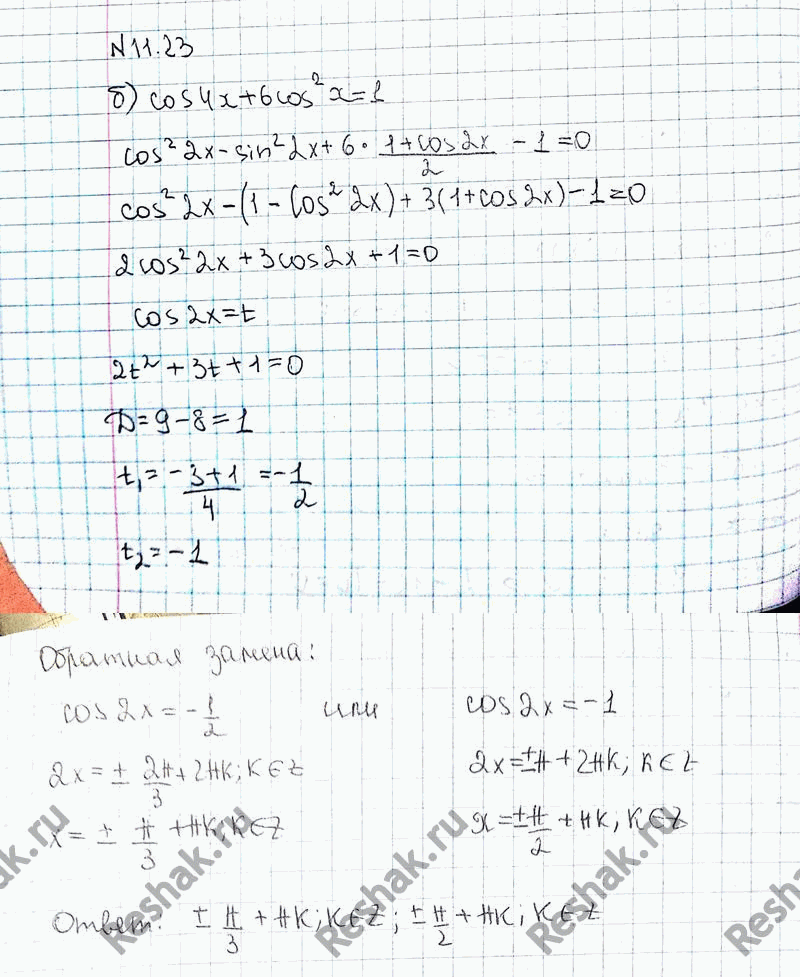 N11.23
б) cos4x+6cos²x=1
cos²2x-sin²2x+6·(1+cos2x)/2 -1=0
cos²2x-(1-Cos²2x)+3(1+cos2x)-1=0
2cos²2x+3cos2x+1=0
cos2x=t
2t²+3t+1=0
Д=9-8=1
t₁=(-3+1)/4=-1/2
t₂=-1
Обратная замена:
cos2x=-1/2 или cos2x=-1
2x=±2π/3+2πK; K∈Z 2x=±π+2πK; K∈Z
x=±π/3+πK; K∈Z x=±π/2+πK, K∈Z
Ответ: ±π/3+πK; K∈Z; ±π/2+πK; K∈Z
ak.ru
Reshak.ru
Reshak.ru
Resh